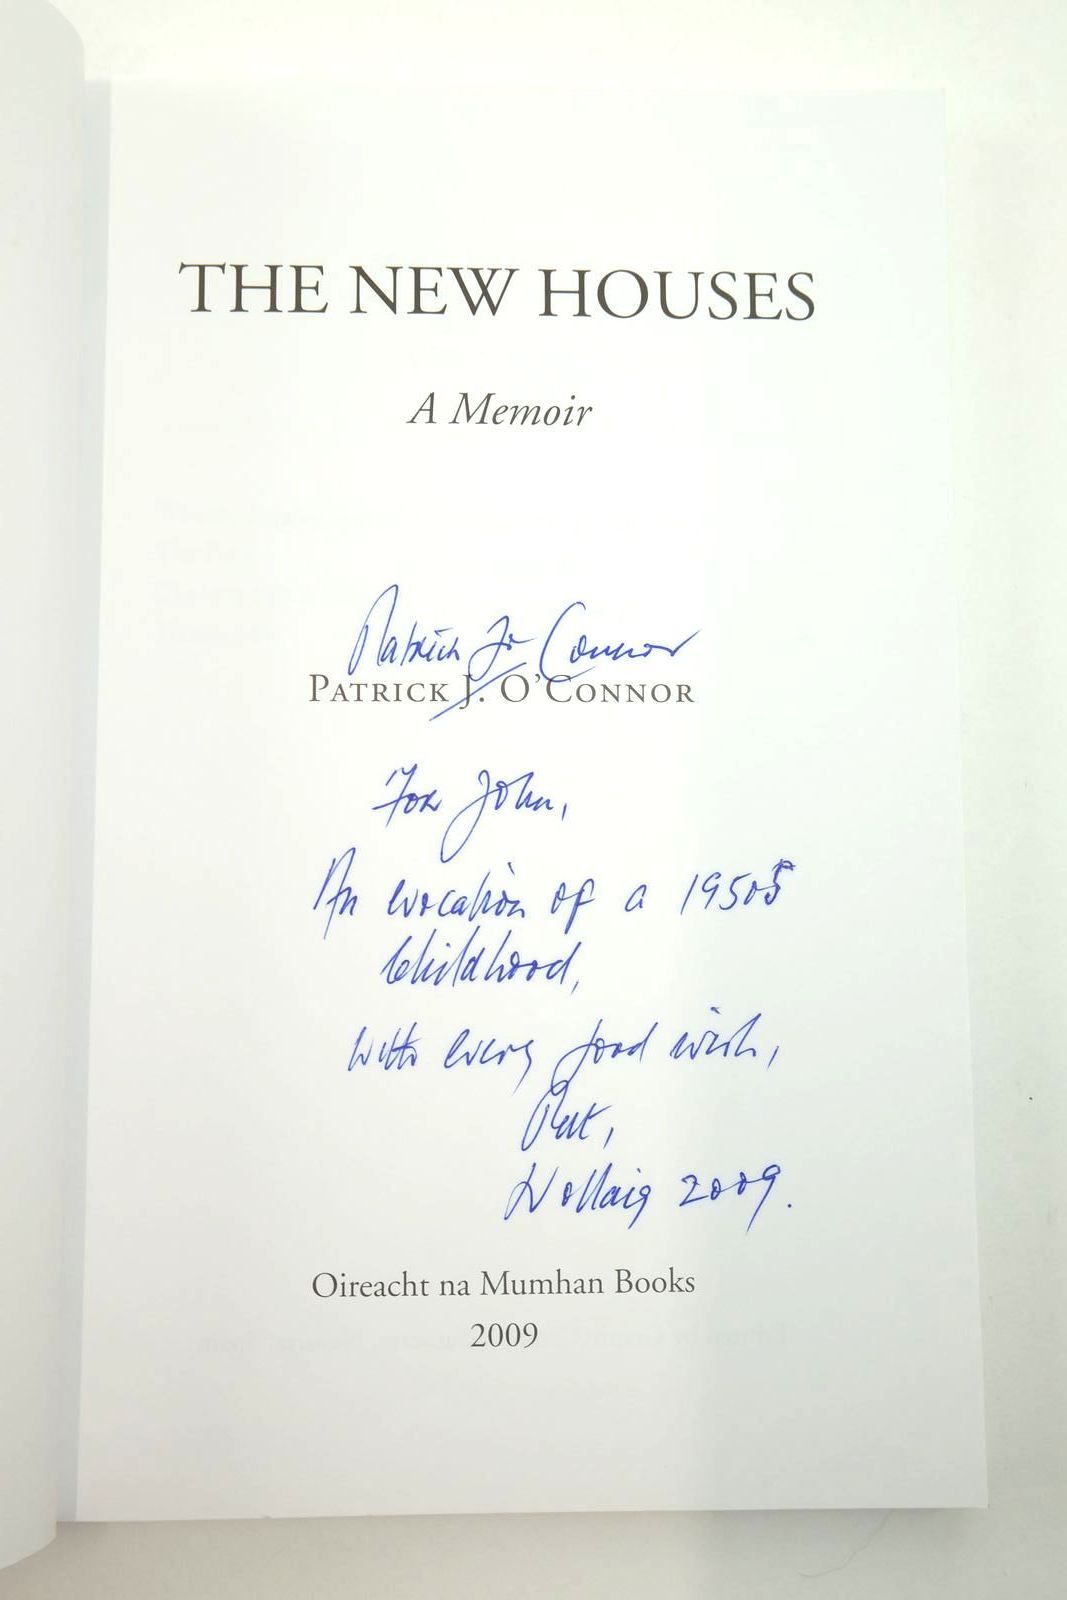 THE NEW HOUSES
A Memoir
Patrick J. O Connor
PATRICK J. O'CONNOR
For John,
An evocation of a 1950s
Childhood,
with every good wish,
Pat,
Nollaig 2009.
Oireacht na Mumhan Books
2009